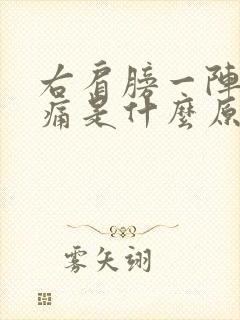 右肩膀一陣
痛是什麼原
雾矢翊